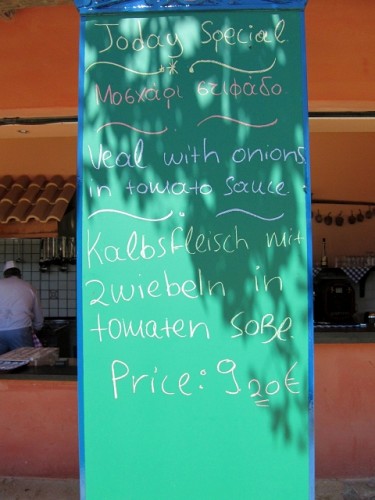 Today Special
Μοσχάρι στιφάδο
Veal with onions
in tomato sauce.
Kalbsfleisch mit
zwiebeln in
tomaten soße.
Price: 9,20€